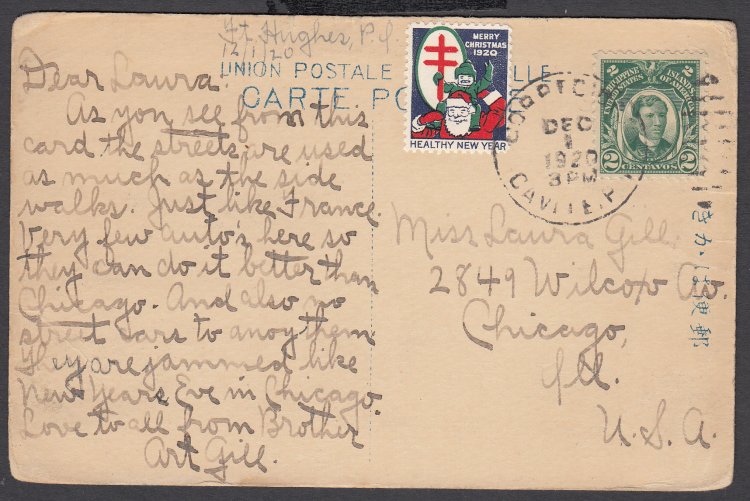 Ft. Hughes, P.I.
12/1/20
UNION POSTALE
CARTE PO
Dear Laura.
As you see from this
card the streets are used
as much as the side
walks. Just like France.
Very few auto's here so
they can do it better than
Chicago. And also no
street cars to anoy them.
They are jammed like
New Years Eve in Chicago.
Love to all from Brother
Art Gill.
MERRY
CHRISTMAS
1920
HEALTHY NEW YEAR
2 2
PHILIPPINE ISLANDS
UNITED STATES OF AMERICA
2 CENTAVOS 2
DEC
1
1920
3 PM
CAVITE, P.
Miss Laura Gill
2849 Wilcox Av.
Chicago,
Ill.
U.S.A.